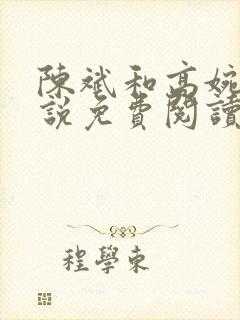 陳斌和高婉
說免費閱讀
程學東